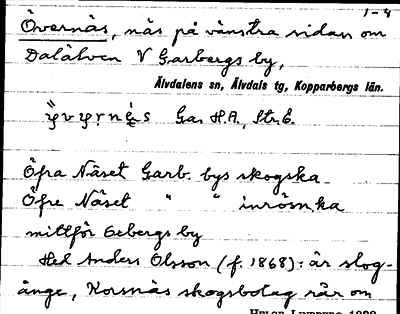 1-4
Övernäs, näs på vänstra sidan om
Dalälven V Garbergs by,
Älvdalens sn, Älvdals tg, Kopparbergs län.
Gar. H.A., Str. E.
Öfra Näset Garb. bys skogska
Öfre Näset " " inrösn.ka
mittför Gebergs by
Hed Anders Olsson (f. 1868): är slog-
änge, Korsnäs skogsbolag rår om